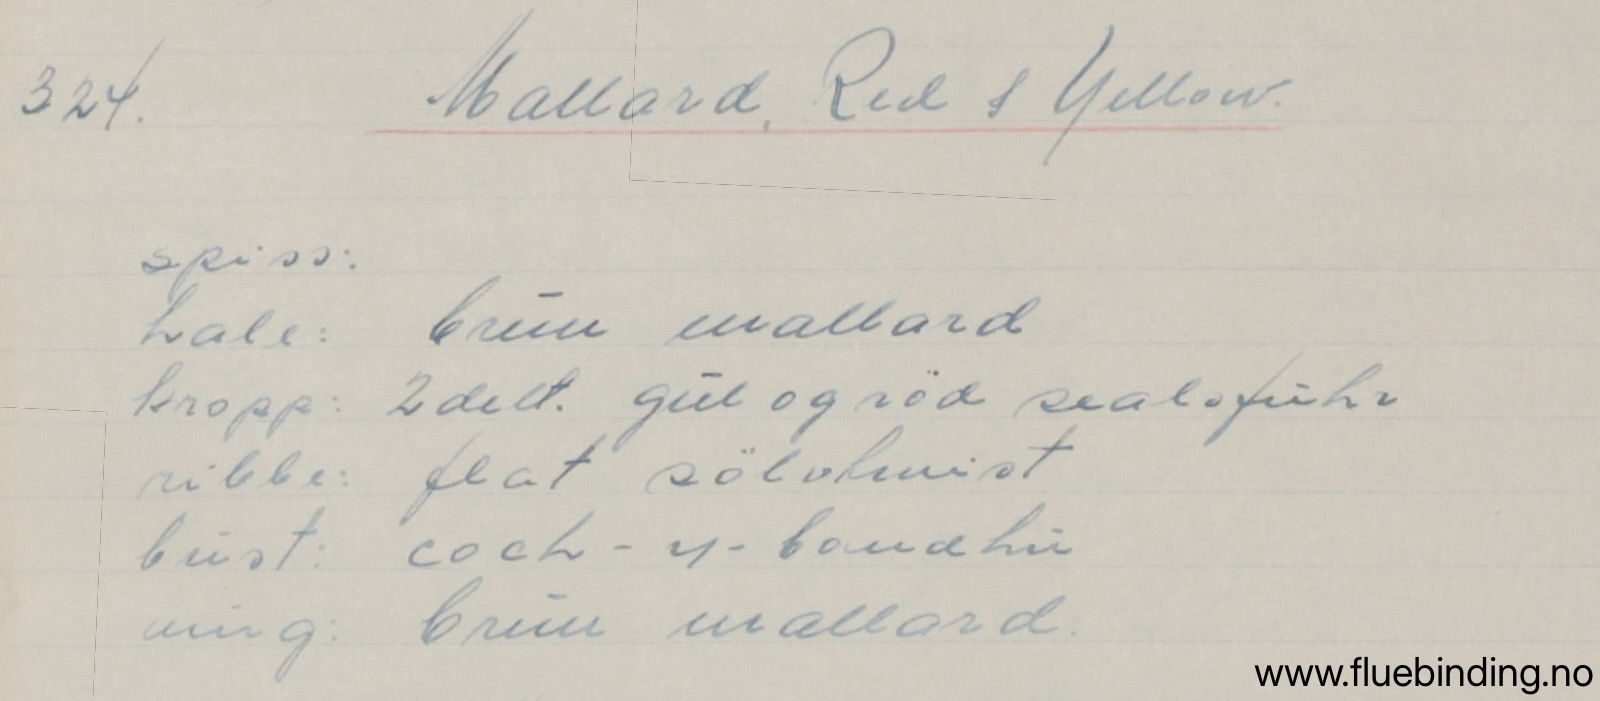 324. Mallard, Red & Yellow.
spiss:
hale: brun mallard
kropp: 2delt. gul og röd sealsfuhr
ribbe: flat sölvtwist
bust: coch-y-bondhu
ving: brun mallard.
www.fluebinding.no